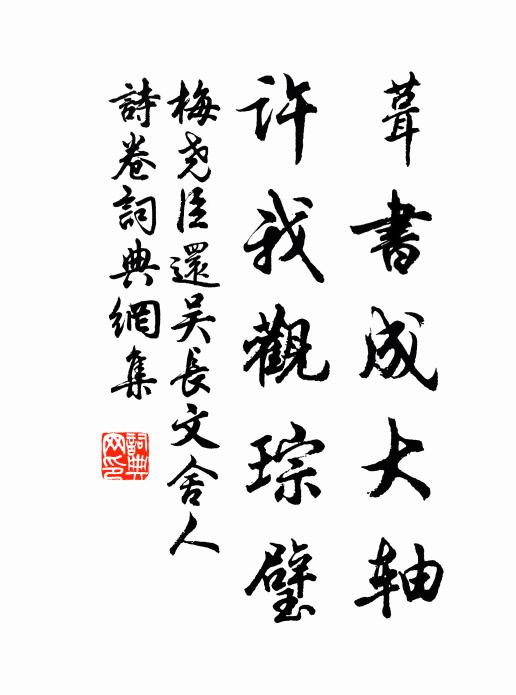 葺書成大軸
許我觀琮璧
梅堯臣還吳長文舍人
詩卷詞典網集
詞典網印